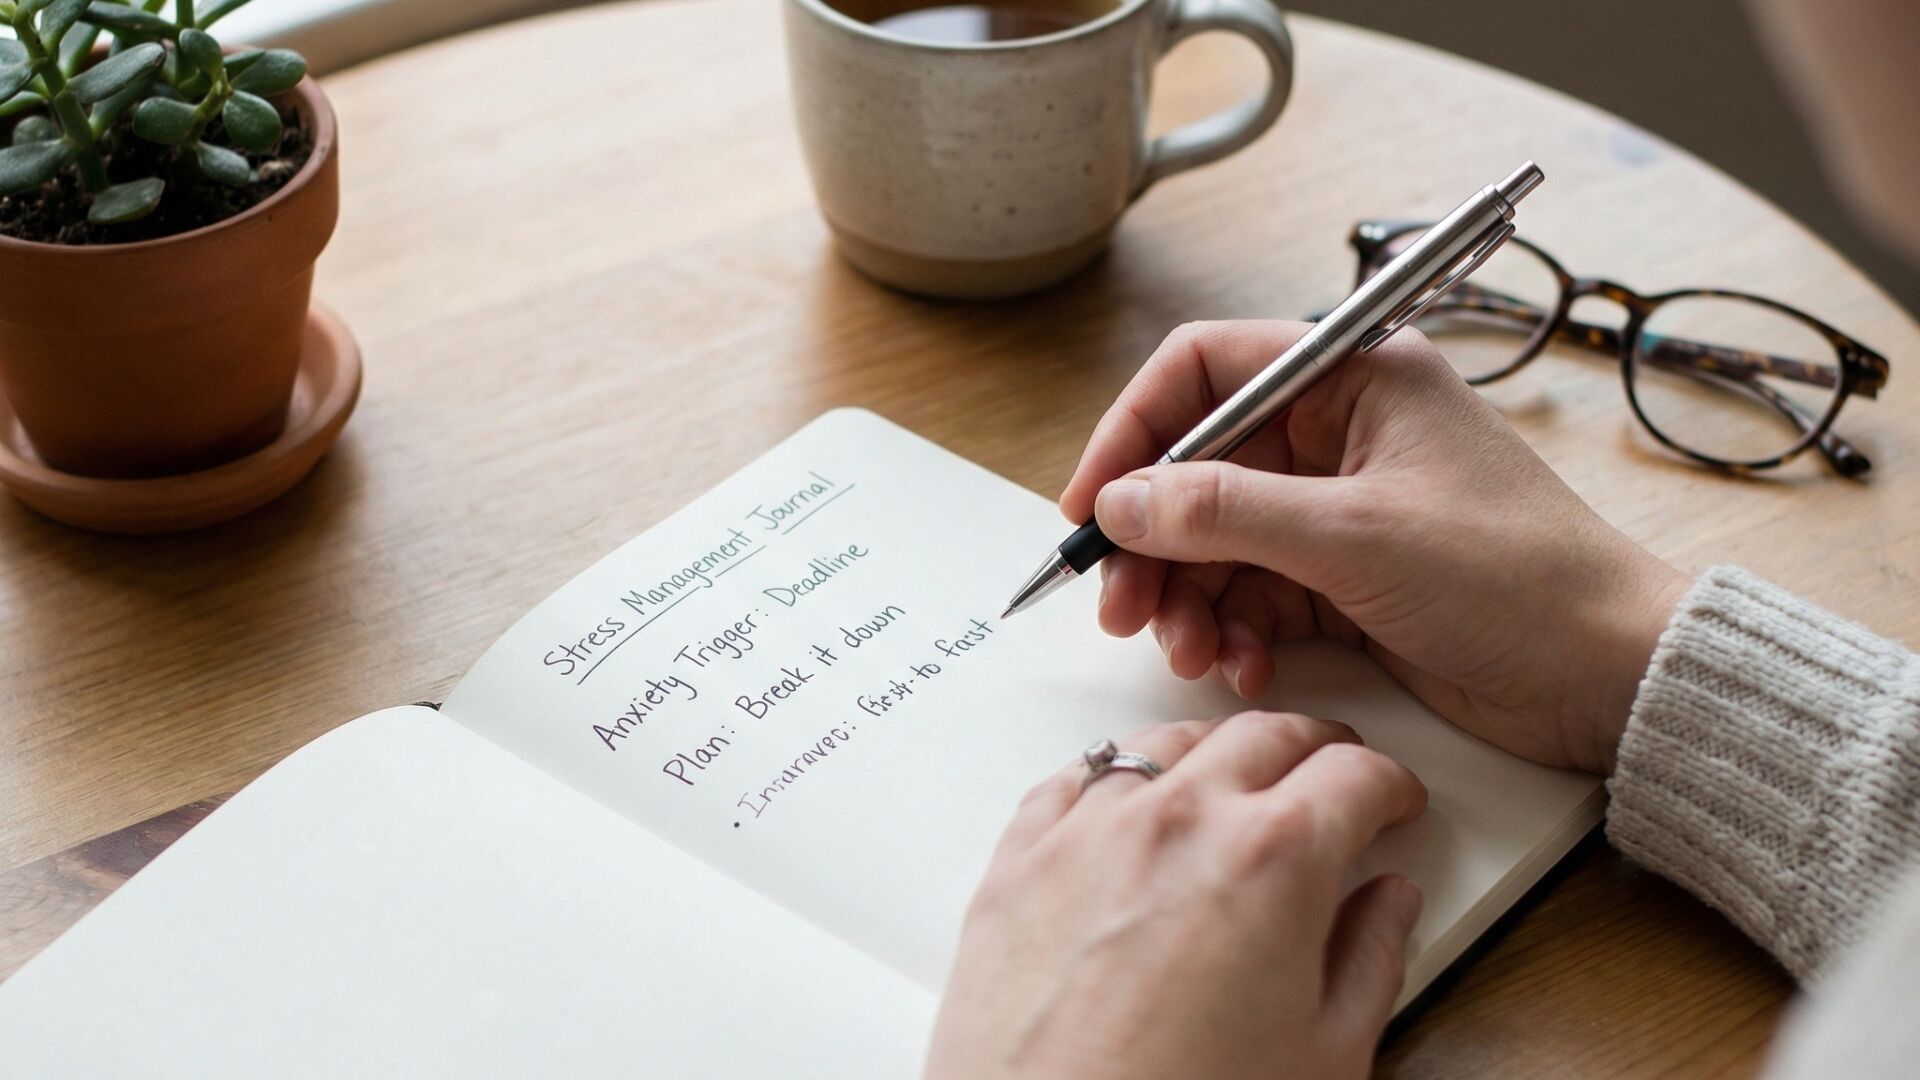 Stress Management Journal
Anxiety Trigger: Deadline
Plan: Break it down
to fast